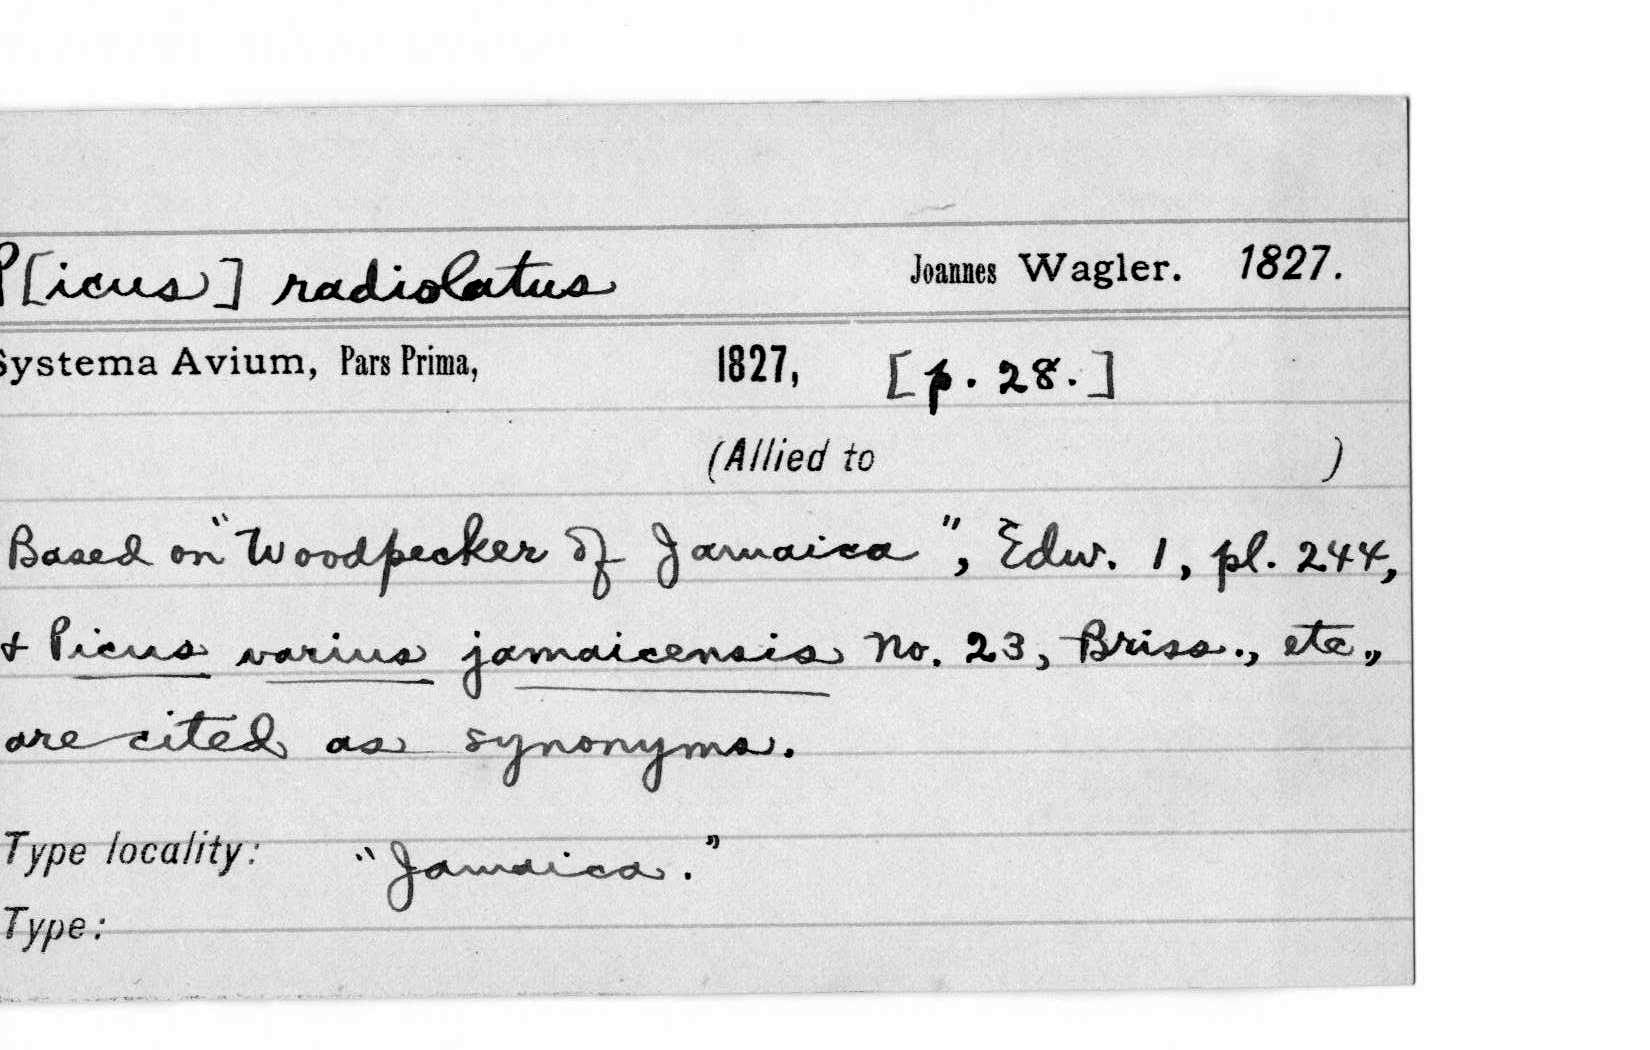 P[icus] radiolatus Joannes Wagler. 1827.
Systema Avium, Pars Prima, 1827, [p. 28.]
(Allied to )
Based on "Woodpecker of Jamaica", Edw. 1, pl. 244,
+ Picus varius jamaicensis No. 23, Briss., etc.,
are cited as synonyms.
Type locality: "Jamaica."
Type: